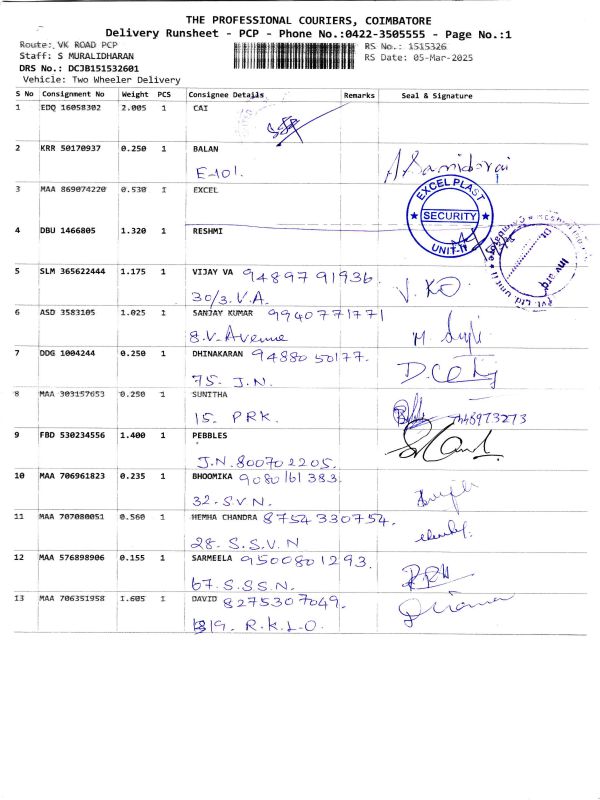 THE PROFESSIONAL COURIERS, COIMBATORE
Delivery Runsheet - PCP - Phone No.:0422-3505555 - Page No.:1
Route: VK ROAD PCP
RS No.: 1515326
Staff: S MURALIDHARAN
RS Date: 05-Mar-2025
DRS No.: DCJB151532601
Vehicle: Two Wheeler Delivery
S No Consignment No Weight PCS Consignee Details Remarks Seal & Signature
1 EDQ 16058302 2.005 1 CAI
2 KRR 50170937 0.250 1 BALAN
E-101.
3 MAA 869074220 0.530 1 EXCEL
EXCEL PLAST
SECURITY
UNIT-II
4 DBU 1466805 1.320 1 RESHMI
5 SLM 365622444 1.175 1 VIJAY VA 94897 91936.
30/3. V.A.
6 ASD 3583105 1.025 1 SANJAY KUMAR 9940771771
8.V. Avenue
7 DDG 1004244 0.250 1 DHINAKARAN 94880 50177.
75. J.N.
8 MAA 303157653 0.250 1 SUNITHA
15. PRK.
9 FBD 530234556 1.400 1 PEBBLES
J.N. 800702205.
10 MAA 706961823 0.235 1 BHOOMIKA 9080161383.
32. S.V.N.
11 MAA 707080051 0.560 1 HEMHA CHANDRA 8754330754.
28. S.S.V.N
12 MAA 576898906 0.155 1 SARMEELA 9500801293.
67. S.SSN.
13 MAA 706351958 1.605 1 DAVID 8275307049.
819. R.K.L.O.